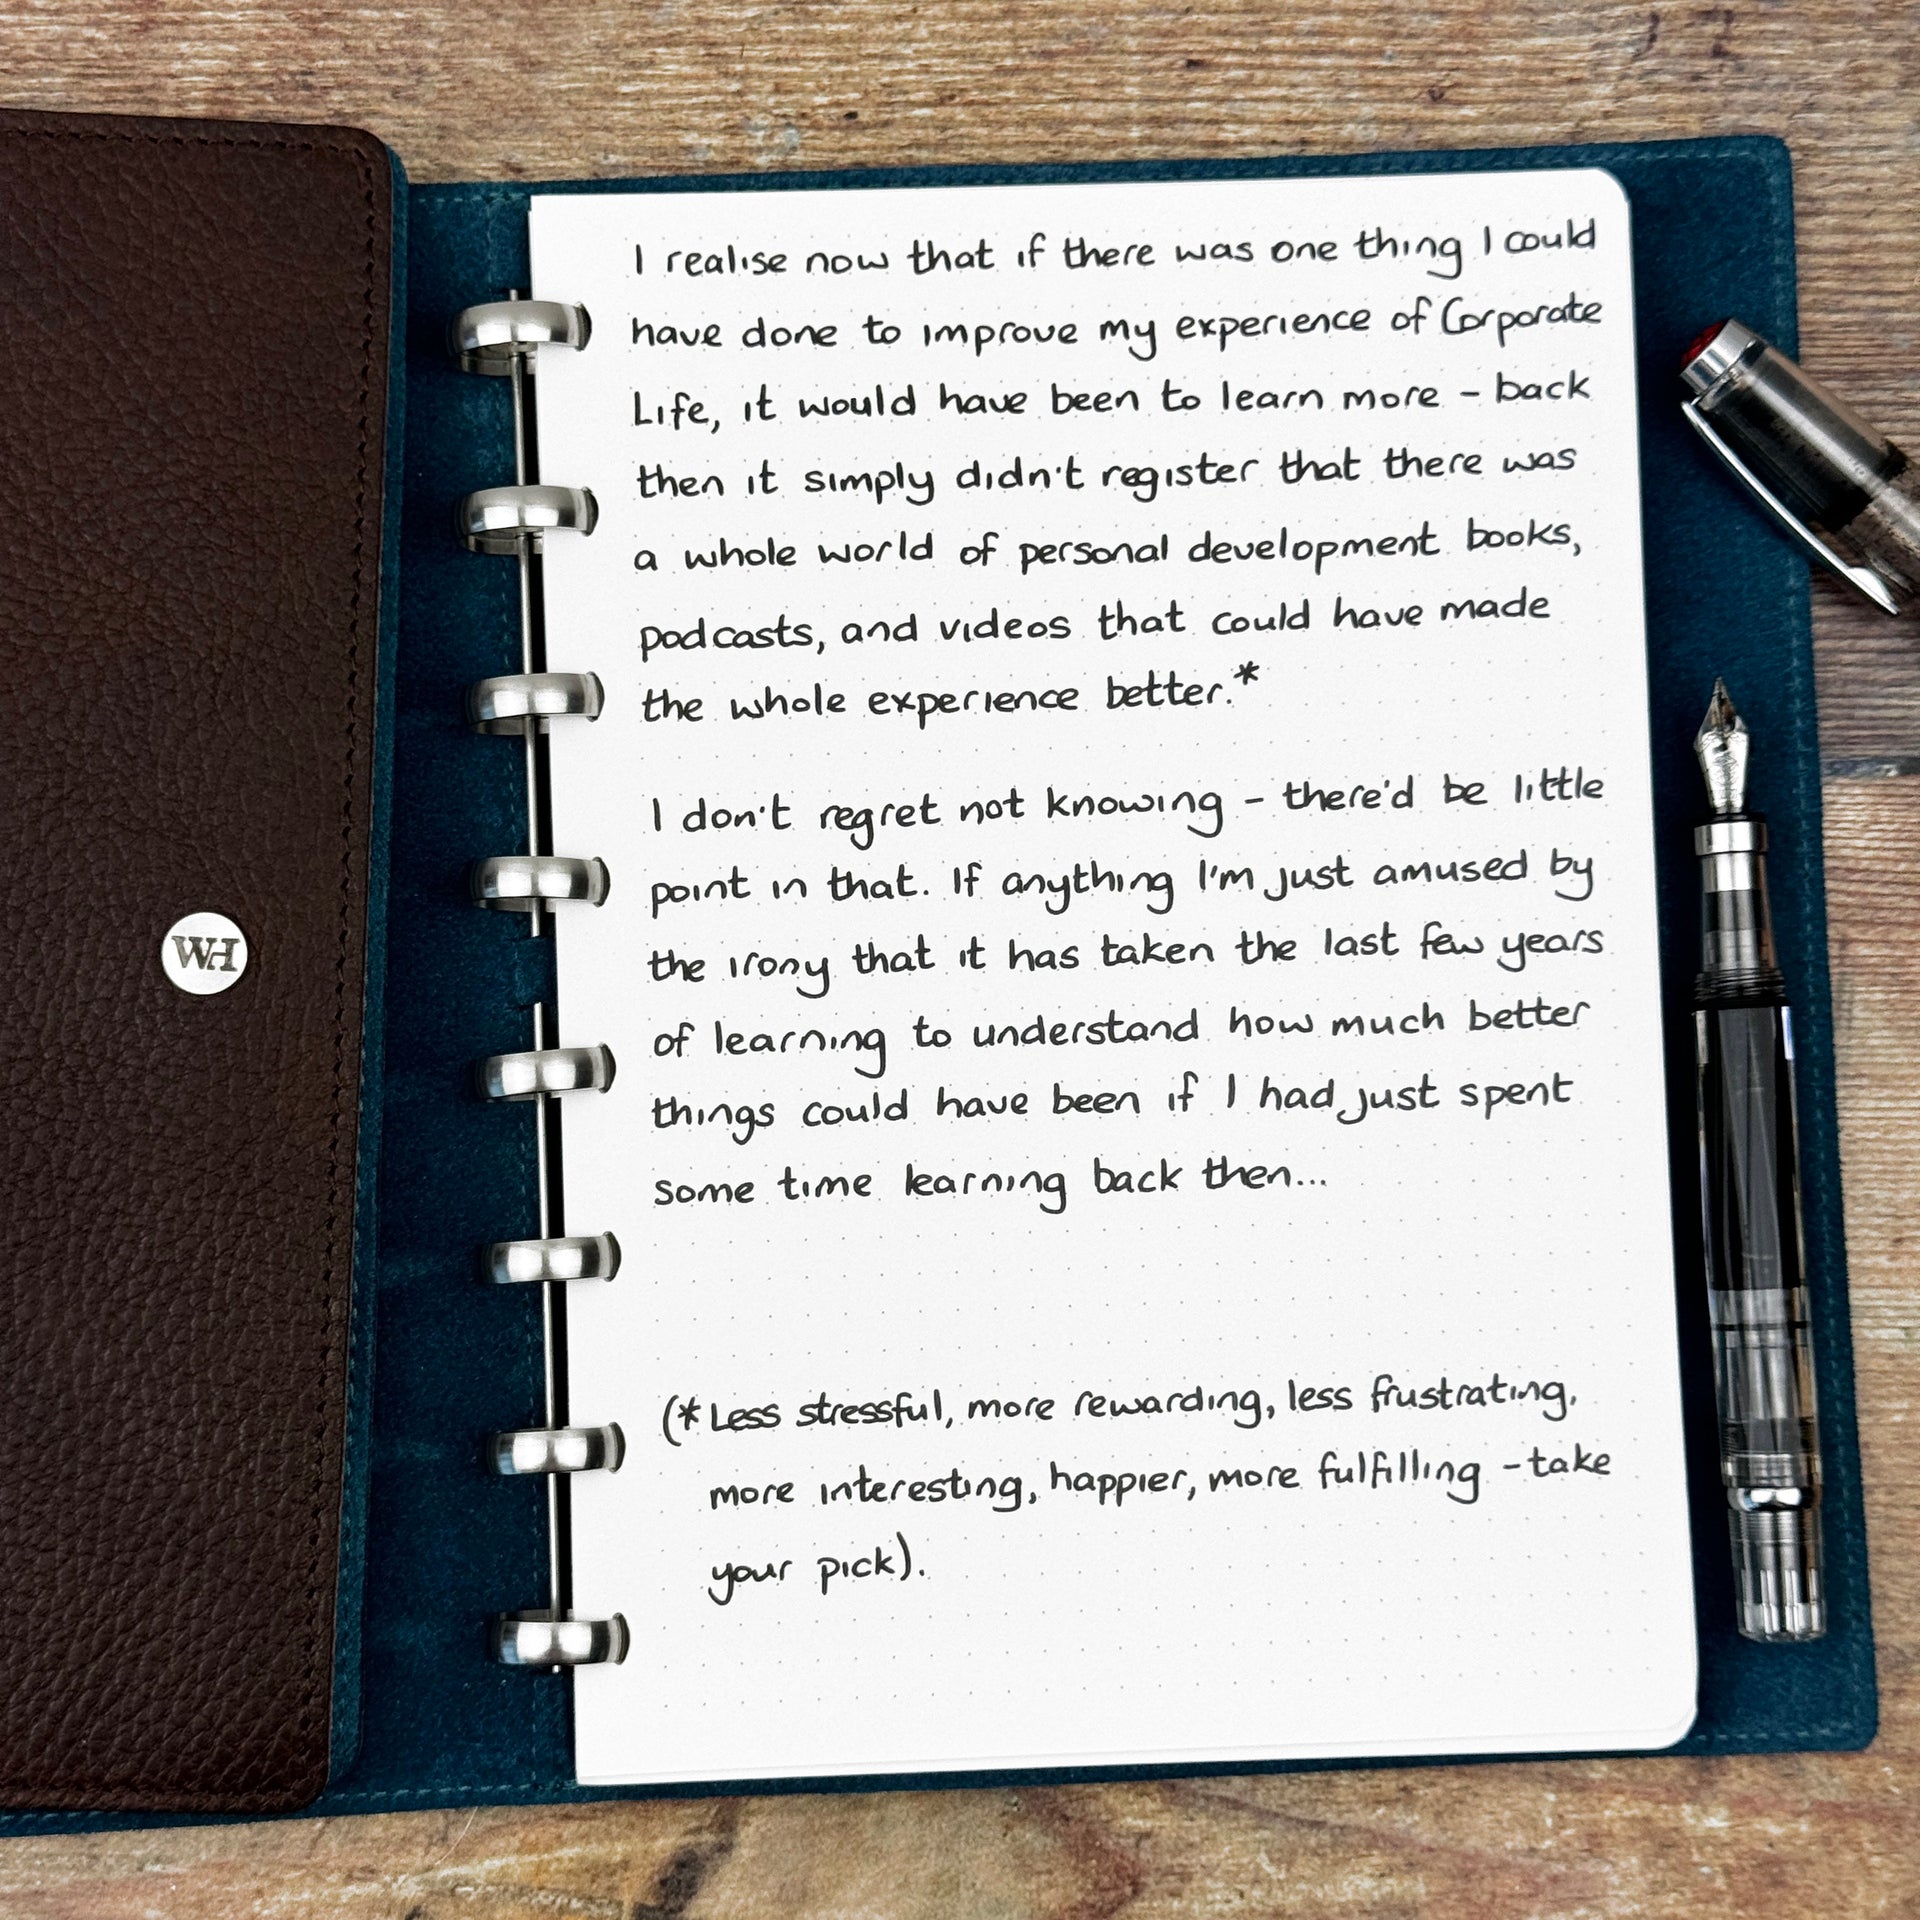 I realise now that if there was one thing I could
have done to improve my experience of Corporate
Life, it would have been to learn more - back
then it simply didn't register that there was
a whole world of personal development books,
podcasts, and videos that could have made
the whole experience better.*
I don't regret not knowing - there'd be little
point in that. If anything I'm just amused by
the irony that it has taken the last few years
of learning to understand how much better
things could have been if I had just spent
some time learning back then...
(* Less stressful, more rewarding, less frustrating,
more interesting, happier, more fulfilling - take
your pick).
WH